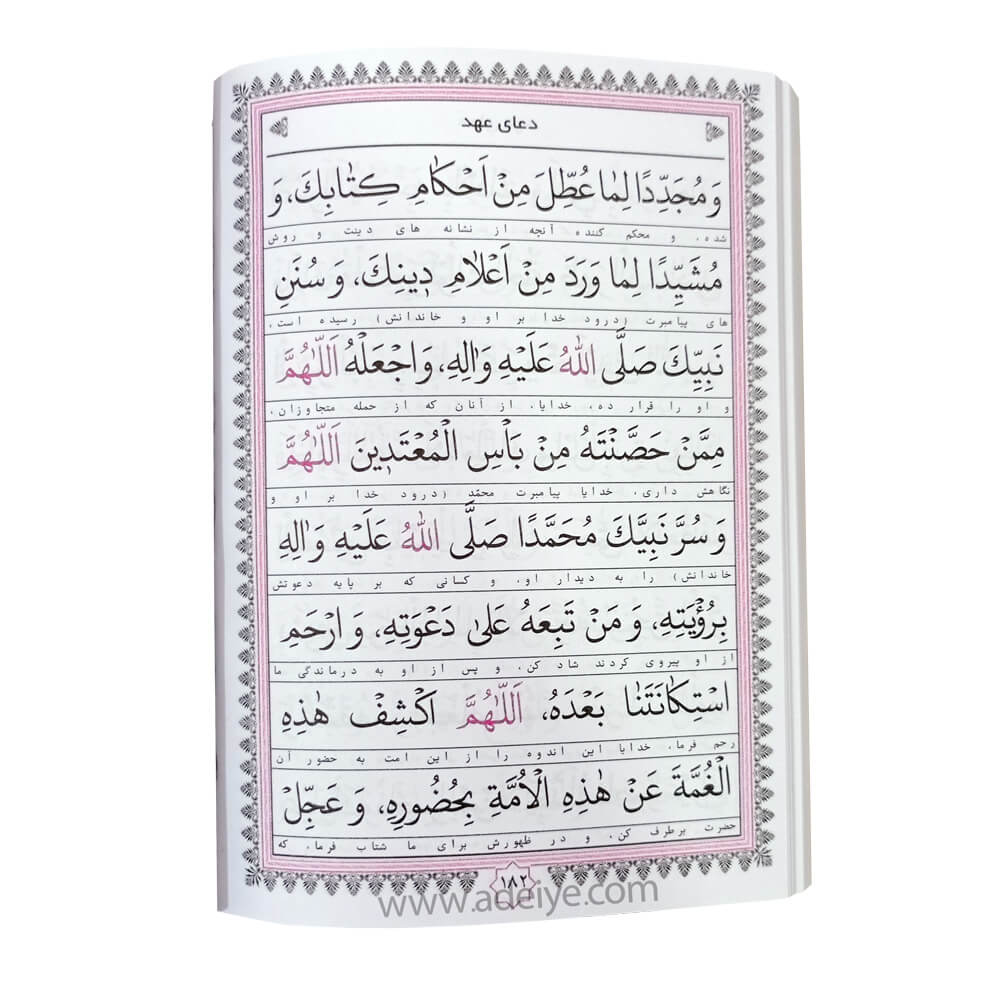 دعای عهد
وَ مُجَدِّدًا لِمٰا عُطِّلَ مِنْ اَحْكٰامِ كِتٰابِكَ، وَ
شده، و محکم کننده آنچه از نشانه های دینت و روش
مُشَيِّدًا لِمٰا وَرَدَ مِنْ اَعْلٰامِ دٖينِكَ، وَ سُنَنِ
های پیامبرت (درود خدا بر او و خاندانش) رسیده است،
نَبِيِّكَ صَلَّى اللّٰهُ عَلَيْهِ وَاٰلِهِ، وَ اجْعَلْهُ اَللّٰهُمَّ
و او را قرار ده، خدایا، از آنان که از حمله متجاوزان،
مِمَّنْ حَصَّنْتَهُ مِنْ بَاْسِ الْمُعْتَدٖينَ اَللّٰهُمَّ
نگاهش داری، خدایا پیامبرت محمّد (درود خدا بر او و
وَ سُرَّ نَبِيَّكَ مُحَمَّدًا صَلَّى اللّٰهُ عَلَيْهِ وَاٰلِهِ
خاندانش) را به دیدار او، و کسانی که بر پایه دعوتش
بِرُؤْيَتِهِ، وَ مَنْ تَبِعَهُ عَلىٰ دَعْوَتِهِ، وَ ارْحَمِ
از او پیروی کردند شاد کن، و پس از او به درماندگی ما
اسْتِكٰانَتَنٰا بَعْدَهُ، اَللّٰهُمَّ اكْشِفْ هٰذِهِ
رحم فرما، خدایا این اندوه را از این امت به حضور آن
الْغُمَّةَ عَنْ هٰذِهِ الْاُمَّةِ بِحُضُورِهِ، وَ عَجِّلْ
حضرت برطرف کن، و در ظهورش برای ما شتاب فرما، که
١٨٢
www.adeiye.com